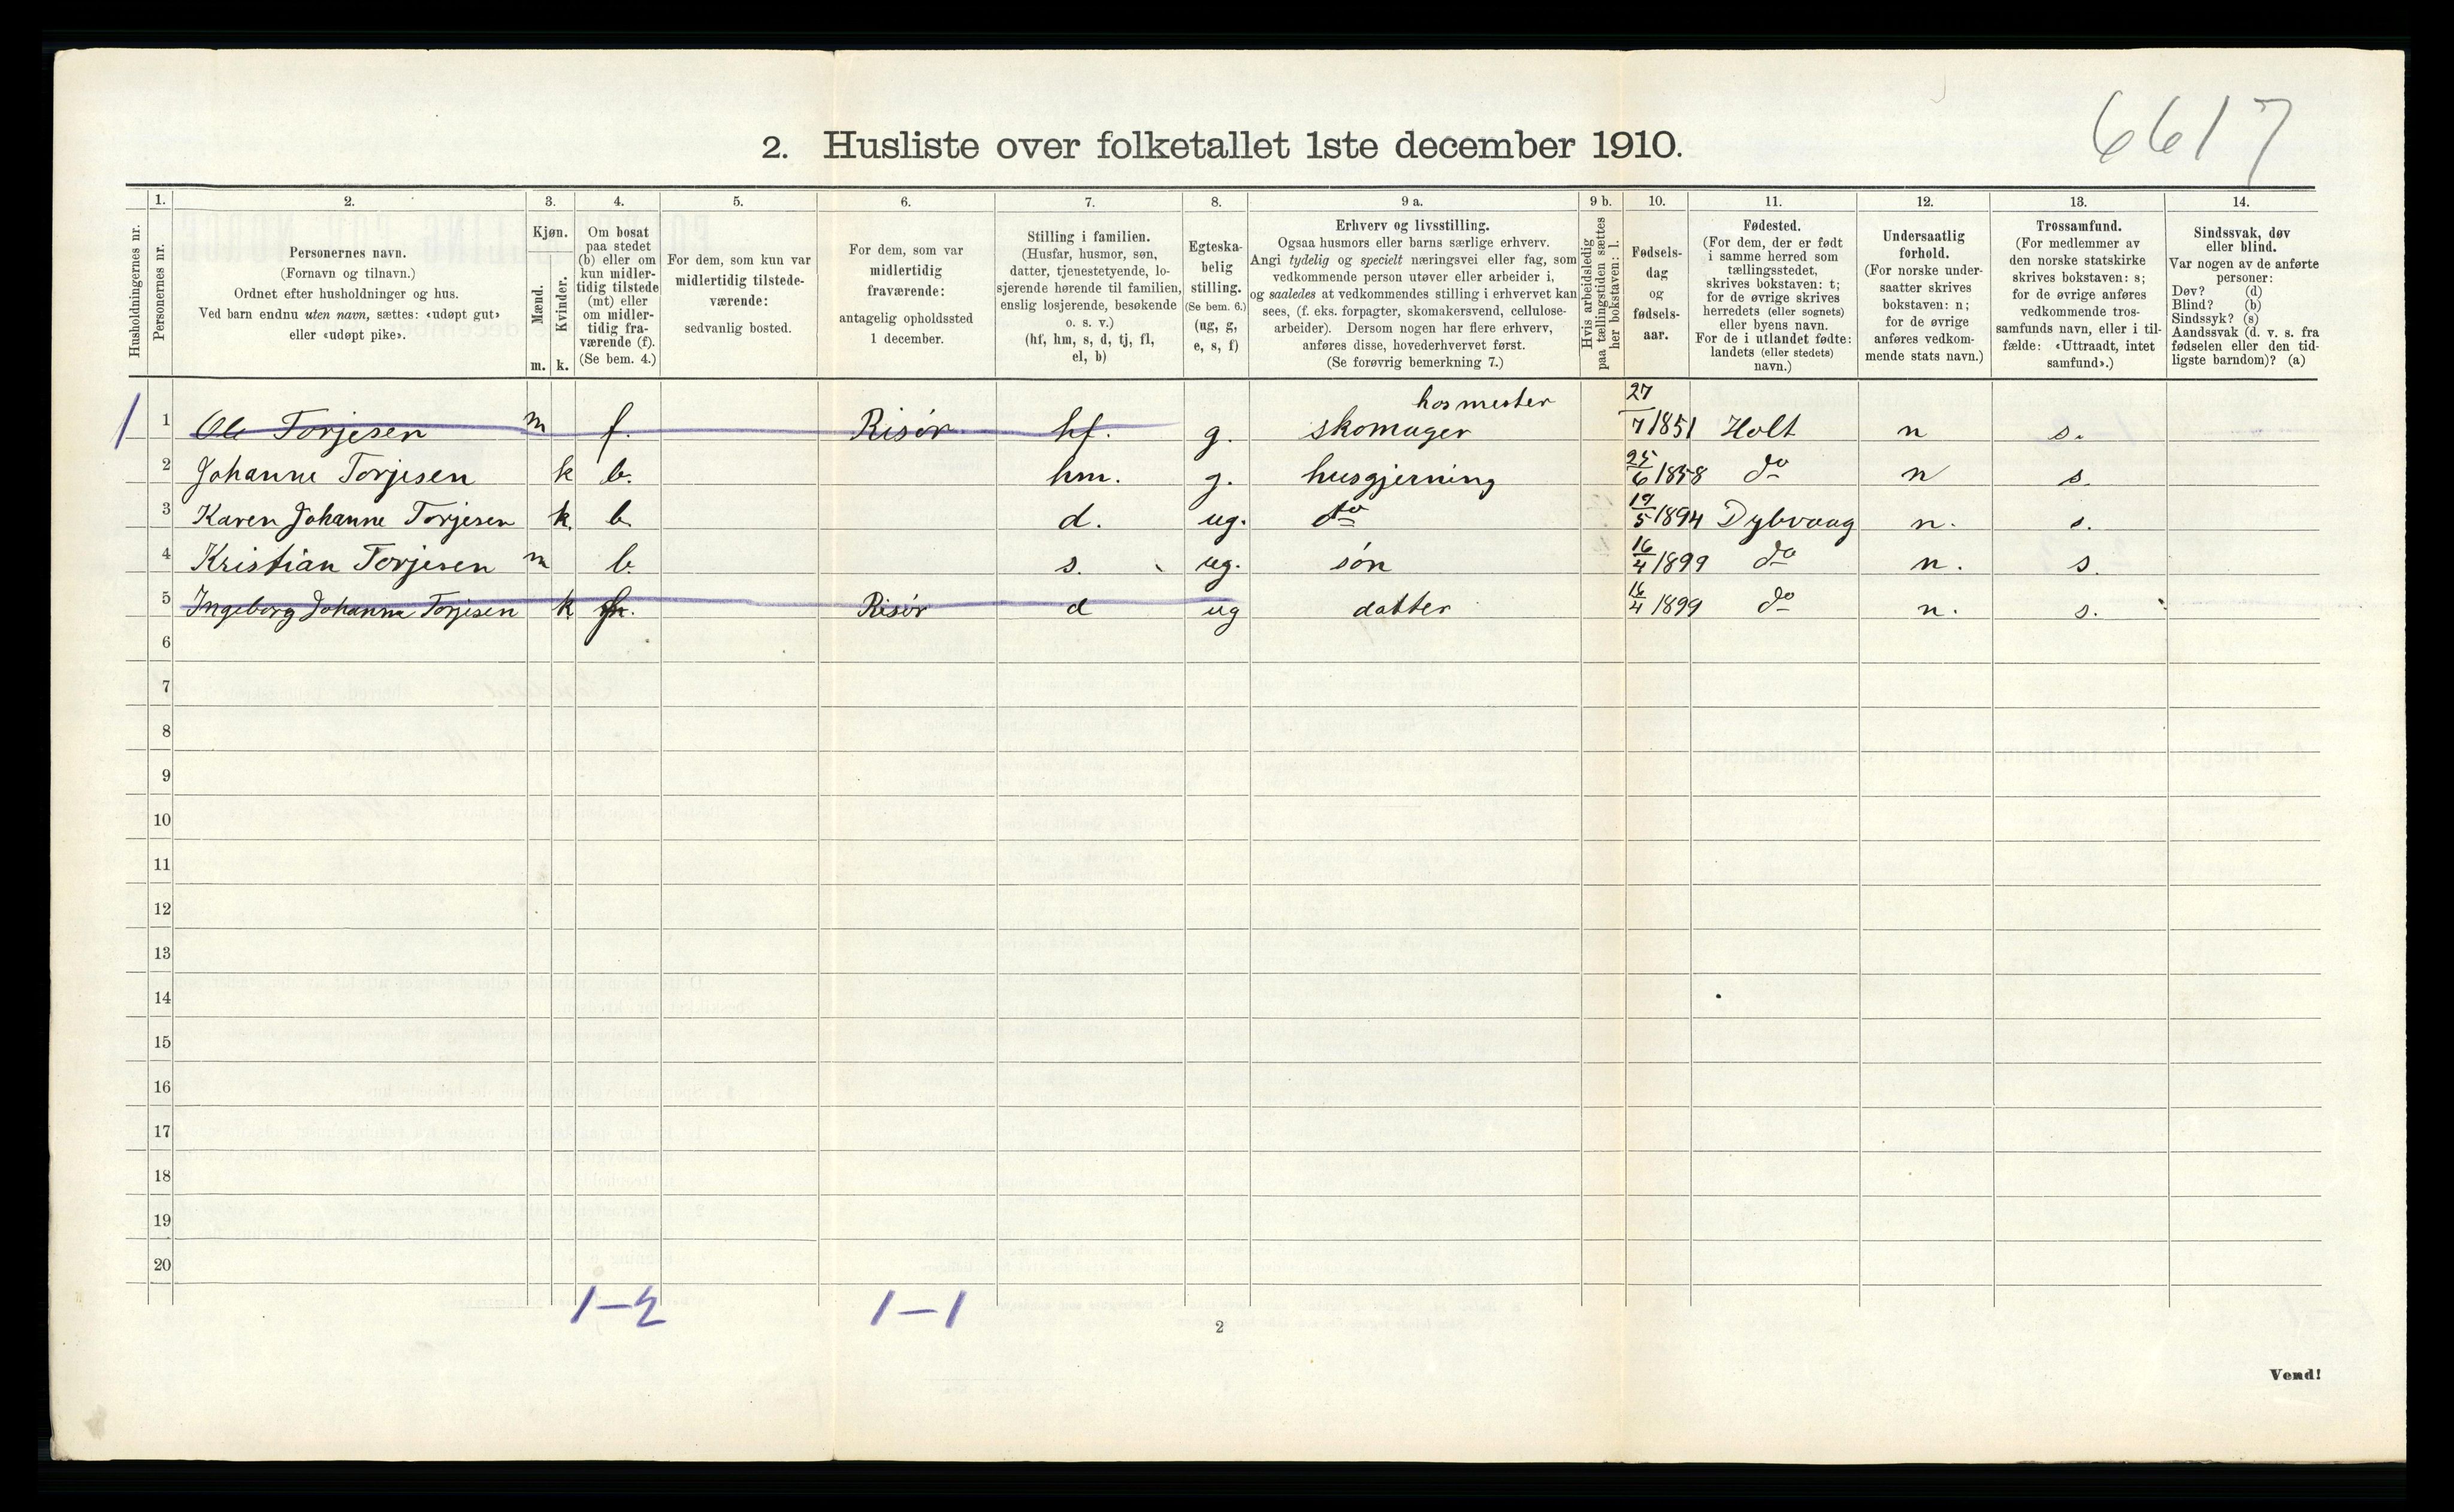 6617
2. Husliste over folketallet 1ste december 1910.
Husholdningernes nr.
1.
Personernes nr.
2.
Personernes navn.
(Fornavn og tilnavn.)
Ordnet efter husholdninger og hus.
Ved barn endnu uten navn, sættes: «udøpt gut»
eller «udøpt pike».
3.
Kjøn.
Mænd.
Kvinder.
m. k.
4.
Om bosat
paa stedet
(b) eller om
kun midler-
tidig tilstede
(mt) eller
om midler-
tidig fra-
værende (f).
(Se bem. 4.)
5.
For dem, som kun var
midlertidig tilstede-
værende:
sedvanlig bosted.
6.
For dem, som var
midlertidig
fraværende:
antagelig opholdssted
1 december.
7.
Stilling i familien.
(Husfar, husmor, søn,
datter, tjenestetyende, lo-
sjerende hørende til familien,
enslig losjerende, besøkende
o. s. v.)
(hf, hm, s, d, tj, fl,
el, b)
8.
Egteska-
belig
stilling.
(Se bem. 6.)
(ug, g,
e, s, f)
9 a.
Erhverv og livsstilling.
Ogsaa husmors eller barns særlige erhverv.
Angi tydelig og specielt næringsvei eller fag, som
vedkommende person utøver eller arbeider i,
og saaledes at vedkommendes stilling i erhvervet kan
sees, (f. eks. forpagter, skomakersvend, cellulose-
arbeider). Dersom nogen har flere erhverv,
anføres disse, hovederhvervet først.
(Se forøvrig bemerkning 7.)
9 b.
Hvis arbeidsledig
paa tællingstiden sættes
her bokstaven: l.
10.
Fødsels-
dag
og
fødsels-
aar.
11.
Fødested.
(For dem, der er født
i samme herred som
tællingsstedet,
skrives bokstaven: t;
for de øvrige skrives
herredets (eller sognets)
eller byens navn.
For de i utlandet fødte:
landets (eller stedets)
navn.)
12.
Undersaatlig
forhold.
(For norske under-
saatter skrives
bokstaven: n;
for de øvrige
anføres vedkom-
mende stats navn.)
13.
Trossamfund.
(For medlemmer av
den norske statskirke
skrives bokstaven: s;
for de øvrige anføres
vedkommende tros-
samfunds navn, eller i til-
fælde: «Uttraadt, intet
samfund».)
14.
Sindssvak, døv
eller blind.
Var nogen av de anførte
personer:
Døv? (d)
Blind? (b)
Sindssyk? (s)
Aandssvak (d. v. s. fra
fødselen eller den tid-
ligste barndom)? (a)
hos mester
1 1 Ole Torjesen m f. Risør hf. g. skomager 27/7 1851 Holt n s.
2 Johanne Torjesen k b. hm. g. husgjerning 25/6 1858 do n s.
3 Karen Johanne Torjesen k. b d. ug. do 19/5 1894 Dybvaag n. s.
4 Kristian Torjesen m b s. ug. søn 16/4 1899 do n. s.
5 Ingeborg Johanne Torjesen k Risør d ug datter 16/4 1899 do n. s.
6
7
8
9
10
11
12
13
14
15
16
17
18
19
20
1–2 1–1
2
Vend!